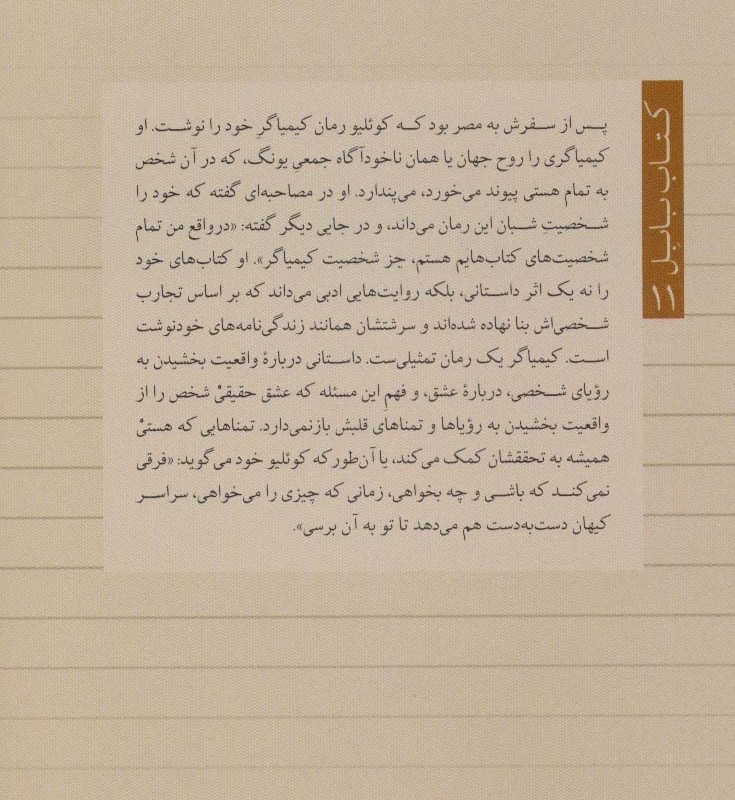 پس از سفرش به مصر بود که کوئلیو رمان کیمیاگرِ خود را نوشت. او
کیمیاگری را روح جهان یا همان ناخودآگاه جمعیِ یونگ، که در آن شخص
به تمام هستی پیوند می‌خورد، می‌پندارد. او در مصاحبه‌ای گفته که خود را
شخصیتِ شبان این رمان می‌داند، و در جایی دیگر گفته: «درواقع من تمام
شخصیت‌های کتاب‌هایم هستم، جز شخصیت کیمیاگر». او کتاب‌های خود
را نه یک اثر داستانی، بلکه روایت‌هایی ادبی می‌داند که بر اساس تجارب
شخصی‌اش بنا نهاده شده‌اند و سرشتشان همانند زندگی‌نامه‌های خودنوشت
است. کیمیاگر یک رمان تمثیلی‌ست. داستانی دربارهٔ واقعیت بخشیدن به
رؤیای شخصی، دربارهٔ عشق، و فهمِ این مسئله که عشق حقیقیْ شخص را از
واقعیت بخشیدن به رؤیاها و تمناهای قلبش بازنمی‌دارد. تمناهایی که هستیْ
همیشه به تحققشان کمک می‌کند، یا آن‌طورکه کوئلیو خود می‌گوید: «فرقی
نمی‌کند که باشی و چه بخواهی، زمانی که چیزی را می‌خواهی، سراسر
کیهان دست‌به‌دست هم می‌دهد تا تو به آن برسی».
کتاب بابل